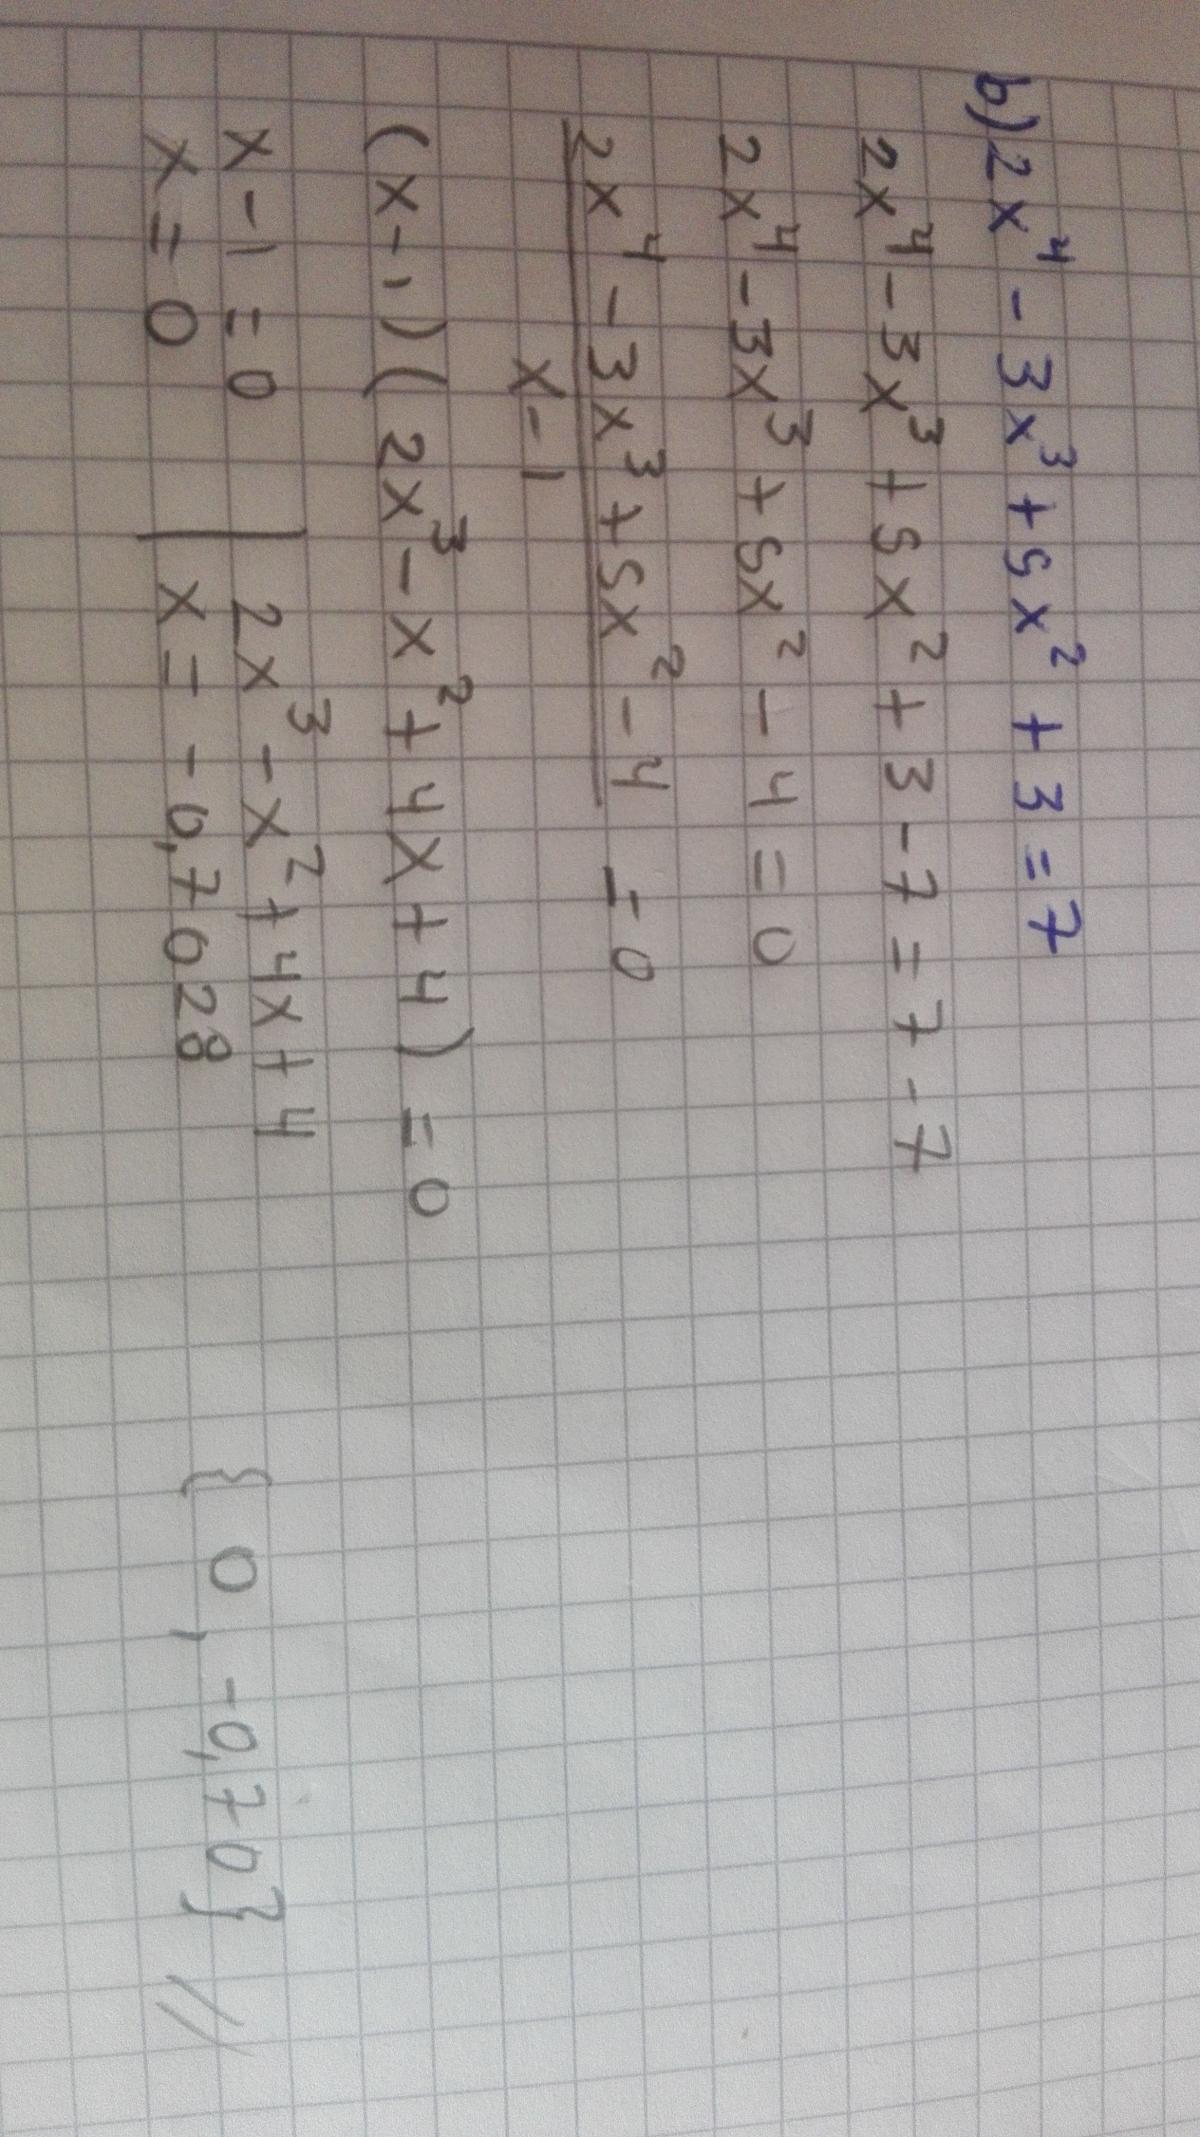 b) 2x⁴ - 3x³ + 5x² + 3 = 7
2x⁴ - 3x³ + 5x² + 3 - 7 = 7 - 7
2x⁴ - 3x³ + 5x² - 4 = 0
2x⁴ - 3x³ + 5x² - 4 = 0
x - 1
(x - 1)(2x³ - x² + 4x + 4) = 0
x - 1 = 0 | 2x³ - x² + 4x + 4
x = 0 | x = -0,7028
{0, -0,70} //